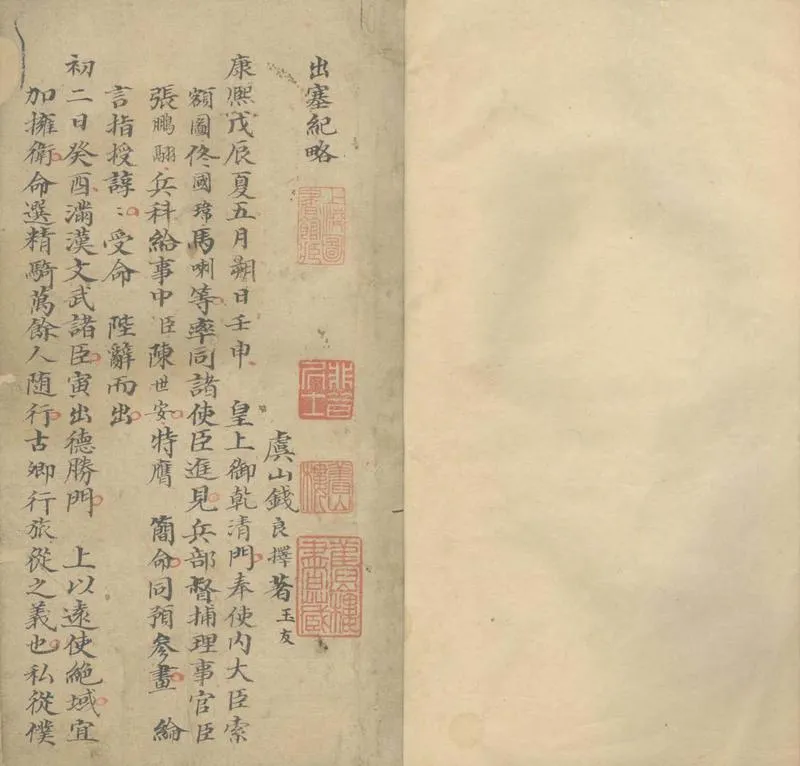 出塞紀略
虞山錢良擇著玉友
康熙戊辰夏五月朔日壬申 皇上御乾清門奉使內大臣索
額圖佟國瑋馬喇等率同諸使臣進見兵部督捕理事官臣
張鵬翮兵科給事中臣陳世安特膺 簡命同預參畫 綸
言指授諄〻受命 陛辭而出
初二日癸酉滿漢文武諸臣寅出德勝門 上以遠使絕域宜
加擁衛命選精騎萬餘人随行古卿行旅從之義也私從僕
上海圖書館藏